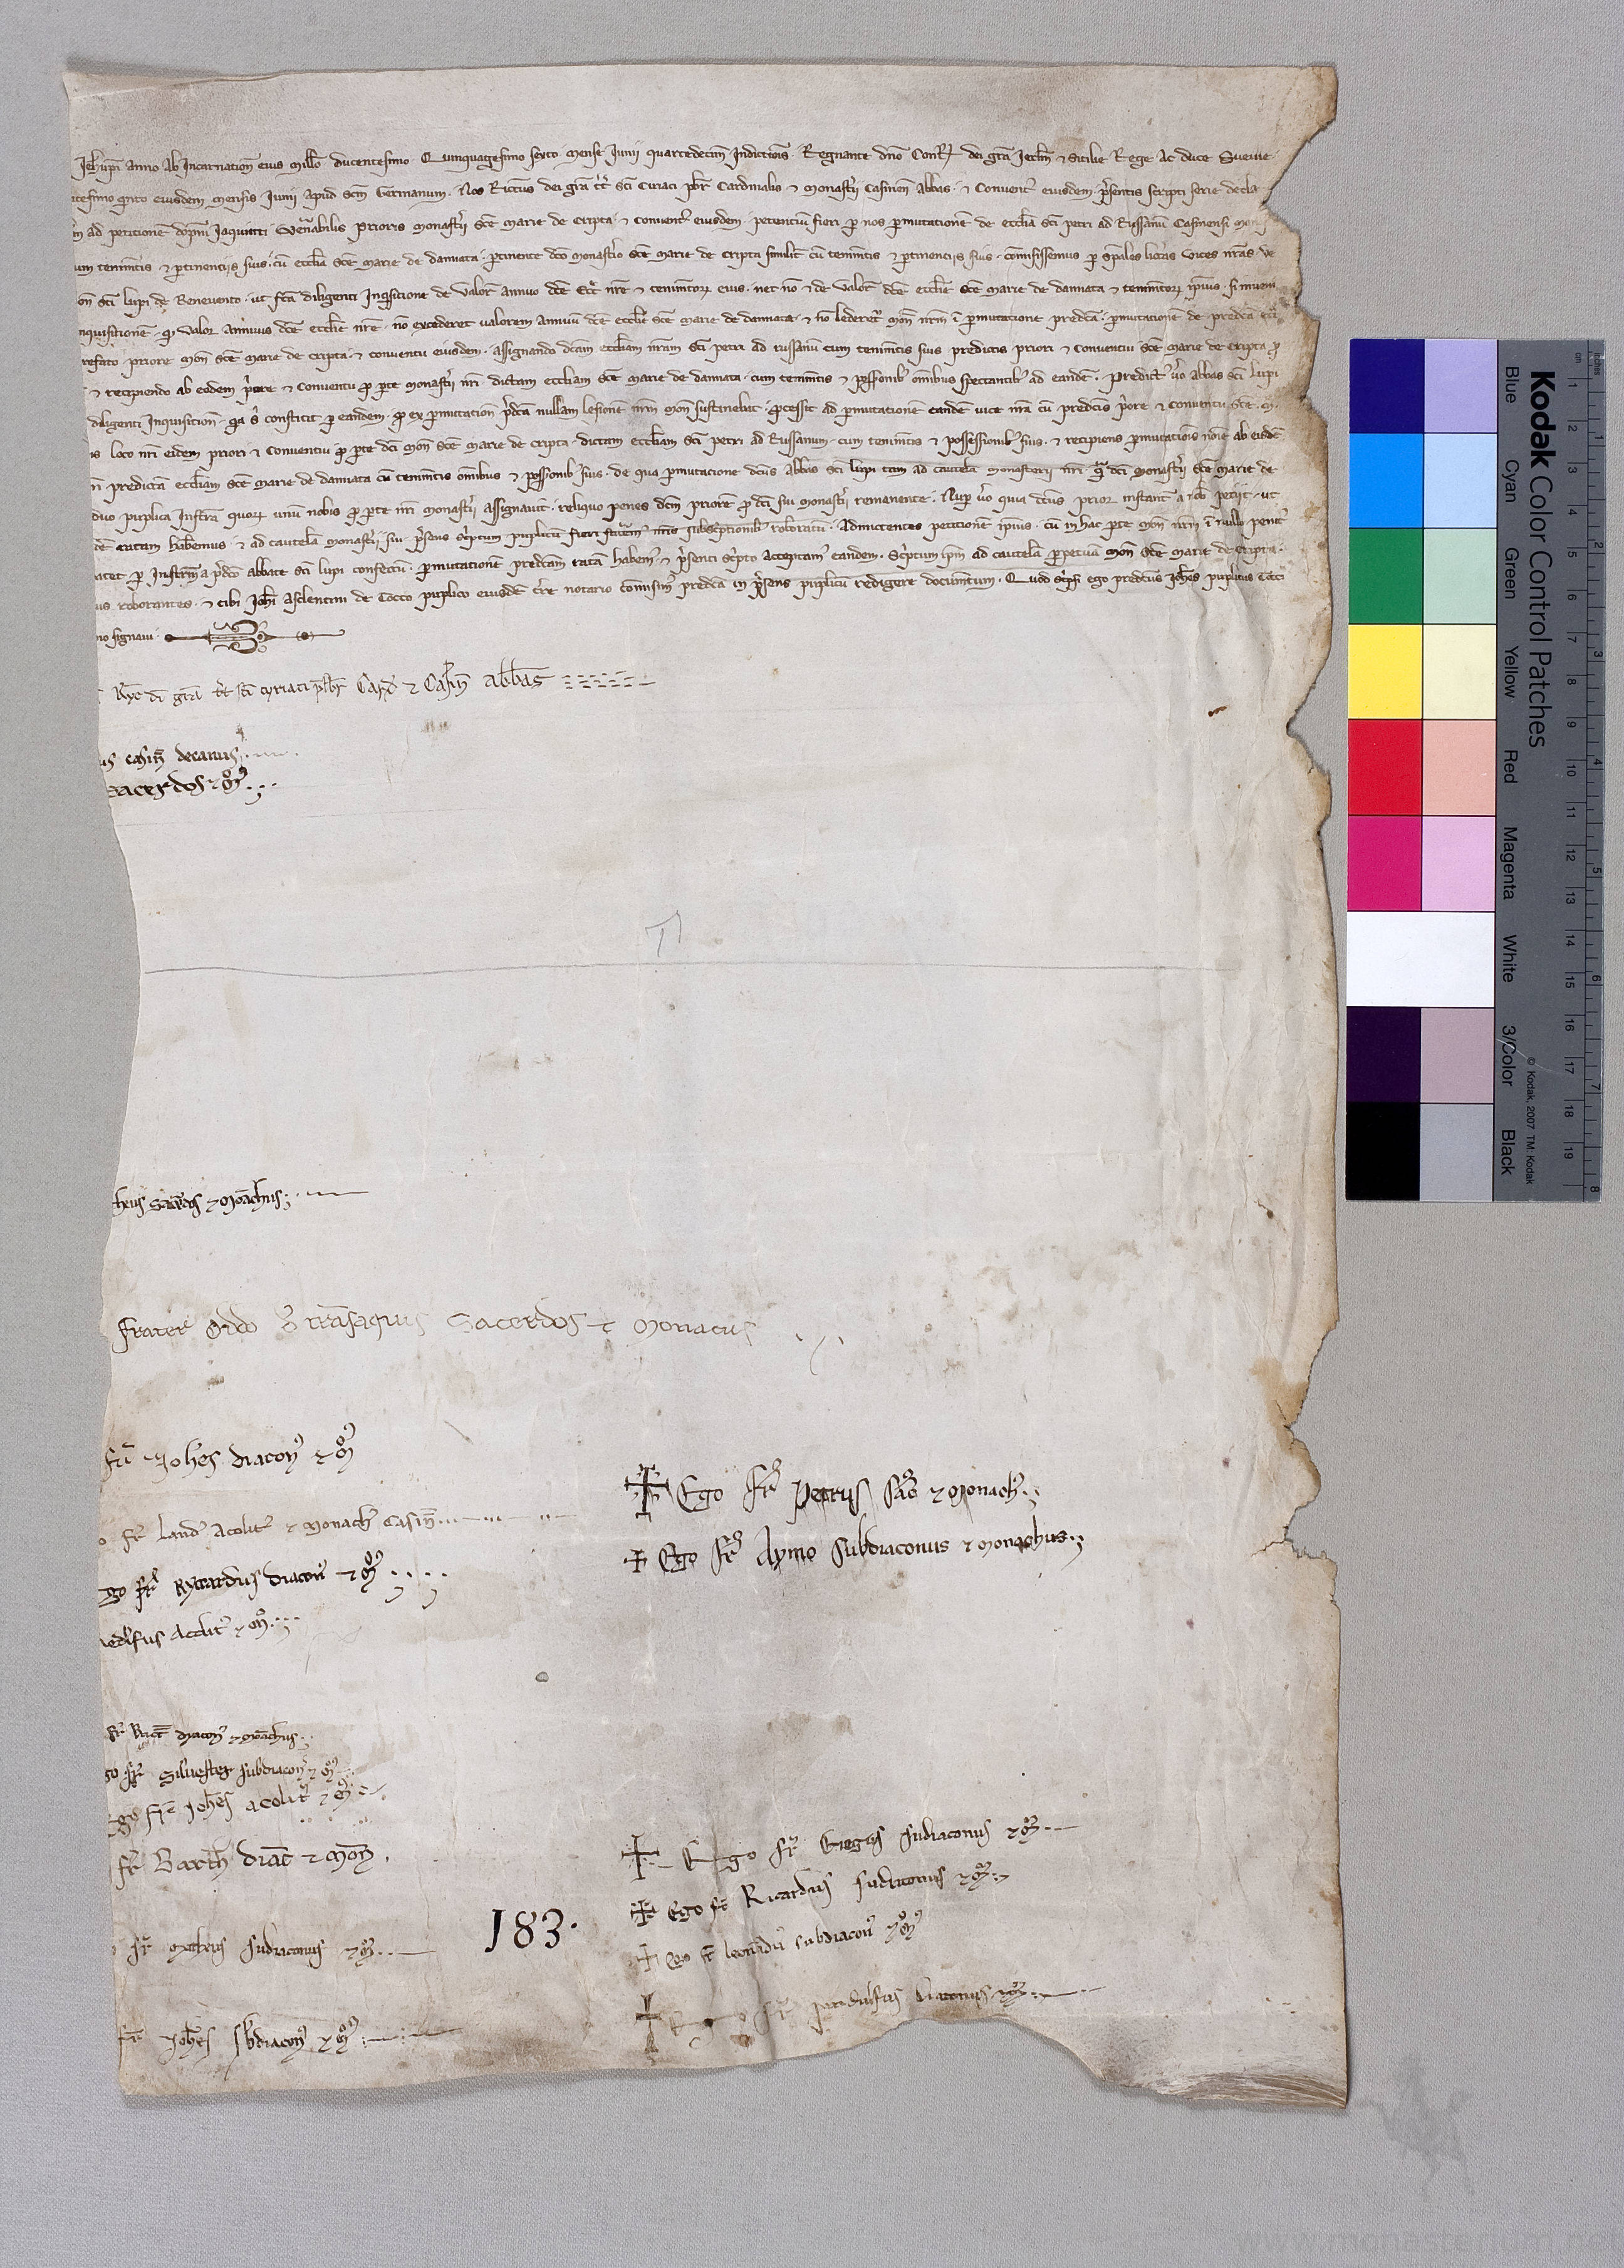 Jeħ xp̄i anno ab Incarnatione eius Mill̄o ducentesimo Quinquagesimo sexto mense Junii quartedecim̄ Indictionis · Regnante dn̄o ConR dei gr̄a Jerl̄m ⁊ Sicilie Rege Ac duce Sueuie
eiusdem mensis Junii apud Sc̄m Germanum · Nos Ricc̄us dei gr̄a tt̄ Sc̄i Ciriaci pb̄r Cardinalis ⁊ monast̄ii Casinen̄ Abbas · ⁊ Conuent᷒ eiusdem · p̄sentis scripti serie decla
ad petitionē dopn̄i Jaquinti Uen̄abilis prioris monast̄ii Sc̄e Marie de Cripta · ⁊ conuent᷒ eiusdem · petentiū fieri p nos pmutationē de ecc̄lia Sc̄i petri ad Russanū Casinensi mon
um tenim̄tis ⁊ ptinenciis suis · cū ecc̄lia Sc̄e Marie de dannata · ptinente dc̄o monast̄io Sc̄e Marie de cripta similit̄ cū tenim̄tis ⁊ ptinenciis suis · commisissemus p sp̄ales lic̄tas uices nr̄as ·
on̄ Sc̄i Lupi de Beneuento · ut fc̄a diligenti Inq̄sitione de ualor̄ annuo dc̄e Ecc̄ nr̄e ⁊ tenim̄torꝝ eius · nec nō ⁊ de ualor̄ dc̄e ecc̄lie Sc̄e Marie de dannata ⁊ tenim̄torꝝ ip̄ius ·
nquisitionē · ꝙ ualor annuus dc̄e ecc̄lie nr̄e · nō excederet ualorem annuū dc̄e ecc̄lie Sc̄e Marie de dannata · ⁊ nō lederet᷒ mon̄ nr̄m ī pmutatione predc̄a · pmutationē de predc̄a
refato priore mon̄ Sc̄e Marie de cripta · ⁊ conuentu eiusdem · assignando dc̄am ecc̄liam nr̄am Sc̄i petri ad russanū cum tenim̄tis suis predictis priori ⁊ conuentui Sc̄e Marie de Cripta ꝓ
⁊ recipiendo ab eodem p̄ore ⁊ Conuentu ꝓ pte monast̄ii nr̄i · dictam ecc̄liam Sc̄e Marie de dannata · cum tenim̄tis ⁊ possionib᷒ omnibus spectantib᷒ ad eandē · Predict᷒ u̇o abbas Sc̄i Lupi
diligenti Inquisition̄ · constitit p eandem · ꝙ ex pmutation̄ p̄dc̄a nullam lesionē nr̄m mon̄ sustinebat · ꝓcessit ad pmutationē eandē uice nr̄a cū predc̄o p̄ore ⁊ conuentu Sc̄e
is loco nr̄i eidem priori ⁊ Conuentui ꝓ pte dc̄i mon̄ Sc̄e Marie de cripta · dictam ecc̄liam Sc̄i petri ad Russanum · cum tenim̄tis ⁊ possessionib᷒ suis · ⁊ recipiens pmutationis noīe ab eisdē
predictā ecc̄liam Sc̄e Marie de dannata cū tenim̄tis omnibus ⁊ possionib᷒ suis · de qua pmutacione dc̄us abbas Sc̄i Lupi tam ad cautelā monasterij nr̄i ꝙ dc̄i monast̄ij Sc̄e Marie de
duo puplica Instr̄a quorꝝ unū nobis ꝓ pte nr̄i monast̄ij assignauit · reliquo penes dc̄m priorē ꝓ dc̄i sui monast̄ij remanente · Nup u̇o quia dc̄us prior instant̄ a nob̄ petijt · ut
ratam habemus ⁊ ad cautelā monast̄ij sui · p̄sens sc̄ptum puplicū fieri nr̄is subsc̄ptionib᷒ roboratū · Admictentes petitionē ip̄ius · cū in hac pte mon̄ nr̄m ī nullo penit᷒
p Instr̄m a p̄dc̄o abbate Sc̄i Lupi confectū · pmutationē predc̄am ratā habem᷒ ⁊ p̄senti sc̄pto acceptam᷒ eandem · Sc̄ptum ip̄m ad cautelā ppetuā mon̄ Sc̄e Marie de Cripta ·
us roborantes · ⁊ tibi Joh̄i Asclentini de Tocco puplico eiusdē t̄re notario commisim᷒ predc̄a in p̄sens puplicū redigere documentum · Quod sc̄psi ego predc̄us Joh̄es puplicus Tocci
no signaui ·
Ryc̄ dī gr̄a tt̄ sc̄i cyriaci pb̄r Card̄ ⁊ Casin̄ abbas
us casin̄ decanus
sacerdos ⁊ m̊᷒
theus Sacerdos ⁊ Monachus
frater Oddo Trāsaquis Sacerdos ⁊ Monacus
fr̄ Joh̄es diacon᷒ ⁊ m̊᷒
o fr̄ Land̄ Acolit᷒ ⁊ monach᷒ Casin̄
✠ Ego fr̄ Petrus sac̄ ⁊ monach᷒
go fr̄ Ryccardus diacon᷒ ⁊ m̊᷒
✠ Ego fr̄ Aymo Subdiaconus ⁊ monachus
Acolit᷒ ⁊ m̊᷒
fr̄ diacon᷒ ⁊ monachus
go fr̄ Siluester subdiacon᷒ ⁊ m̊᷒
Ego fr̄ Joh̄es acolit᷒ ⁊ m̊᷒
fr̄ Barth̄ diac̄ ⁊ mon̄
✠ Ego fr̄ subdiaconus ⁊ m̊᷒
✠ Ego fr̄ Ricardus subdiaconus ⁊ m̊᷒
183·
fr̄ Matheus subdiaconus ⁊ m̊᷒
✠ Ego fr̄ leonardus subdiacon᷒ ⁊ m̊᷒
✠ Ego fr̄ pandulfus diaconus ⁊ m̊᷒
fr̄ Joh̄es subdiacon᷒ ⁊ m̊᷒
Kodak Color Control Patches
Blue Cyan Green Yellow Red Magenta White 3/Color Black
© Kodak, 2007 TM: Kodak
inches 1 2 3 4 5 6 7 8
cm 1 2 3 4 5 6 7 8 9 10 11 12 13 14 15 16 17 18 19
www.monasterium.ne